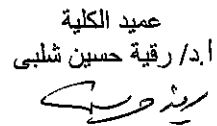 عميد الكلية
ا.د/ رقية حسين شلبى